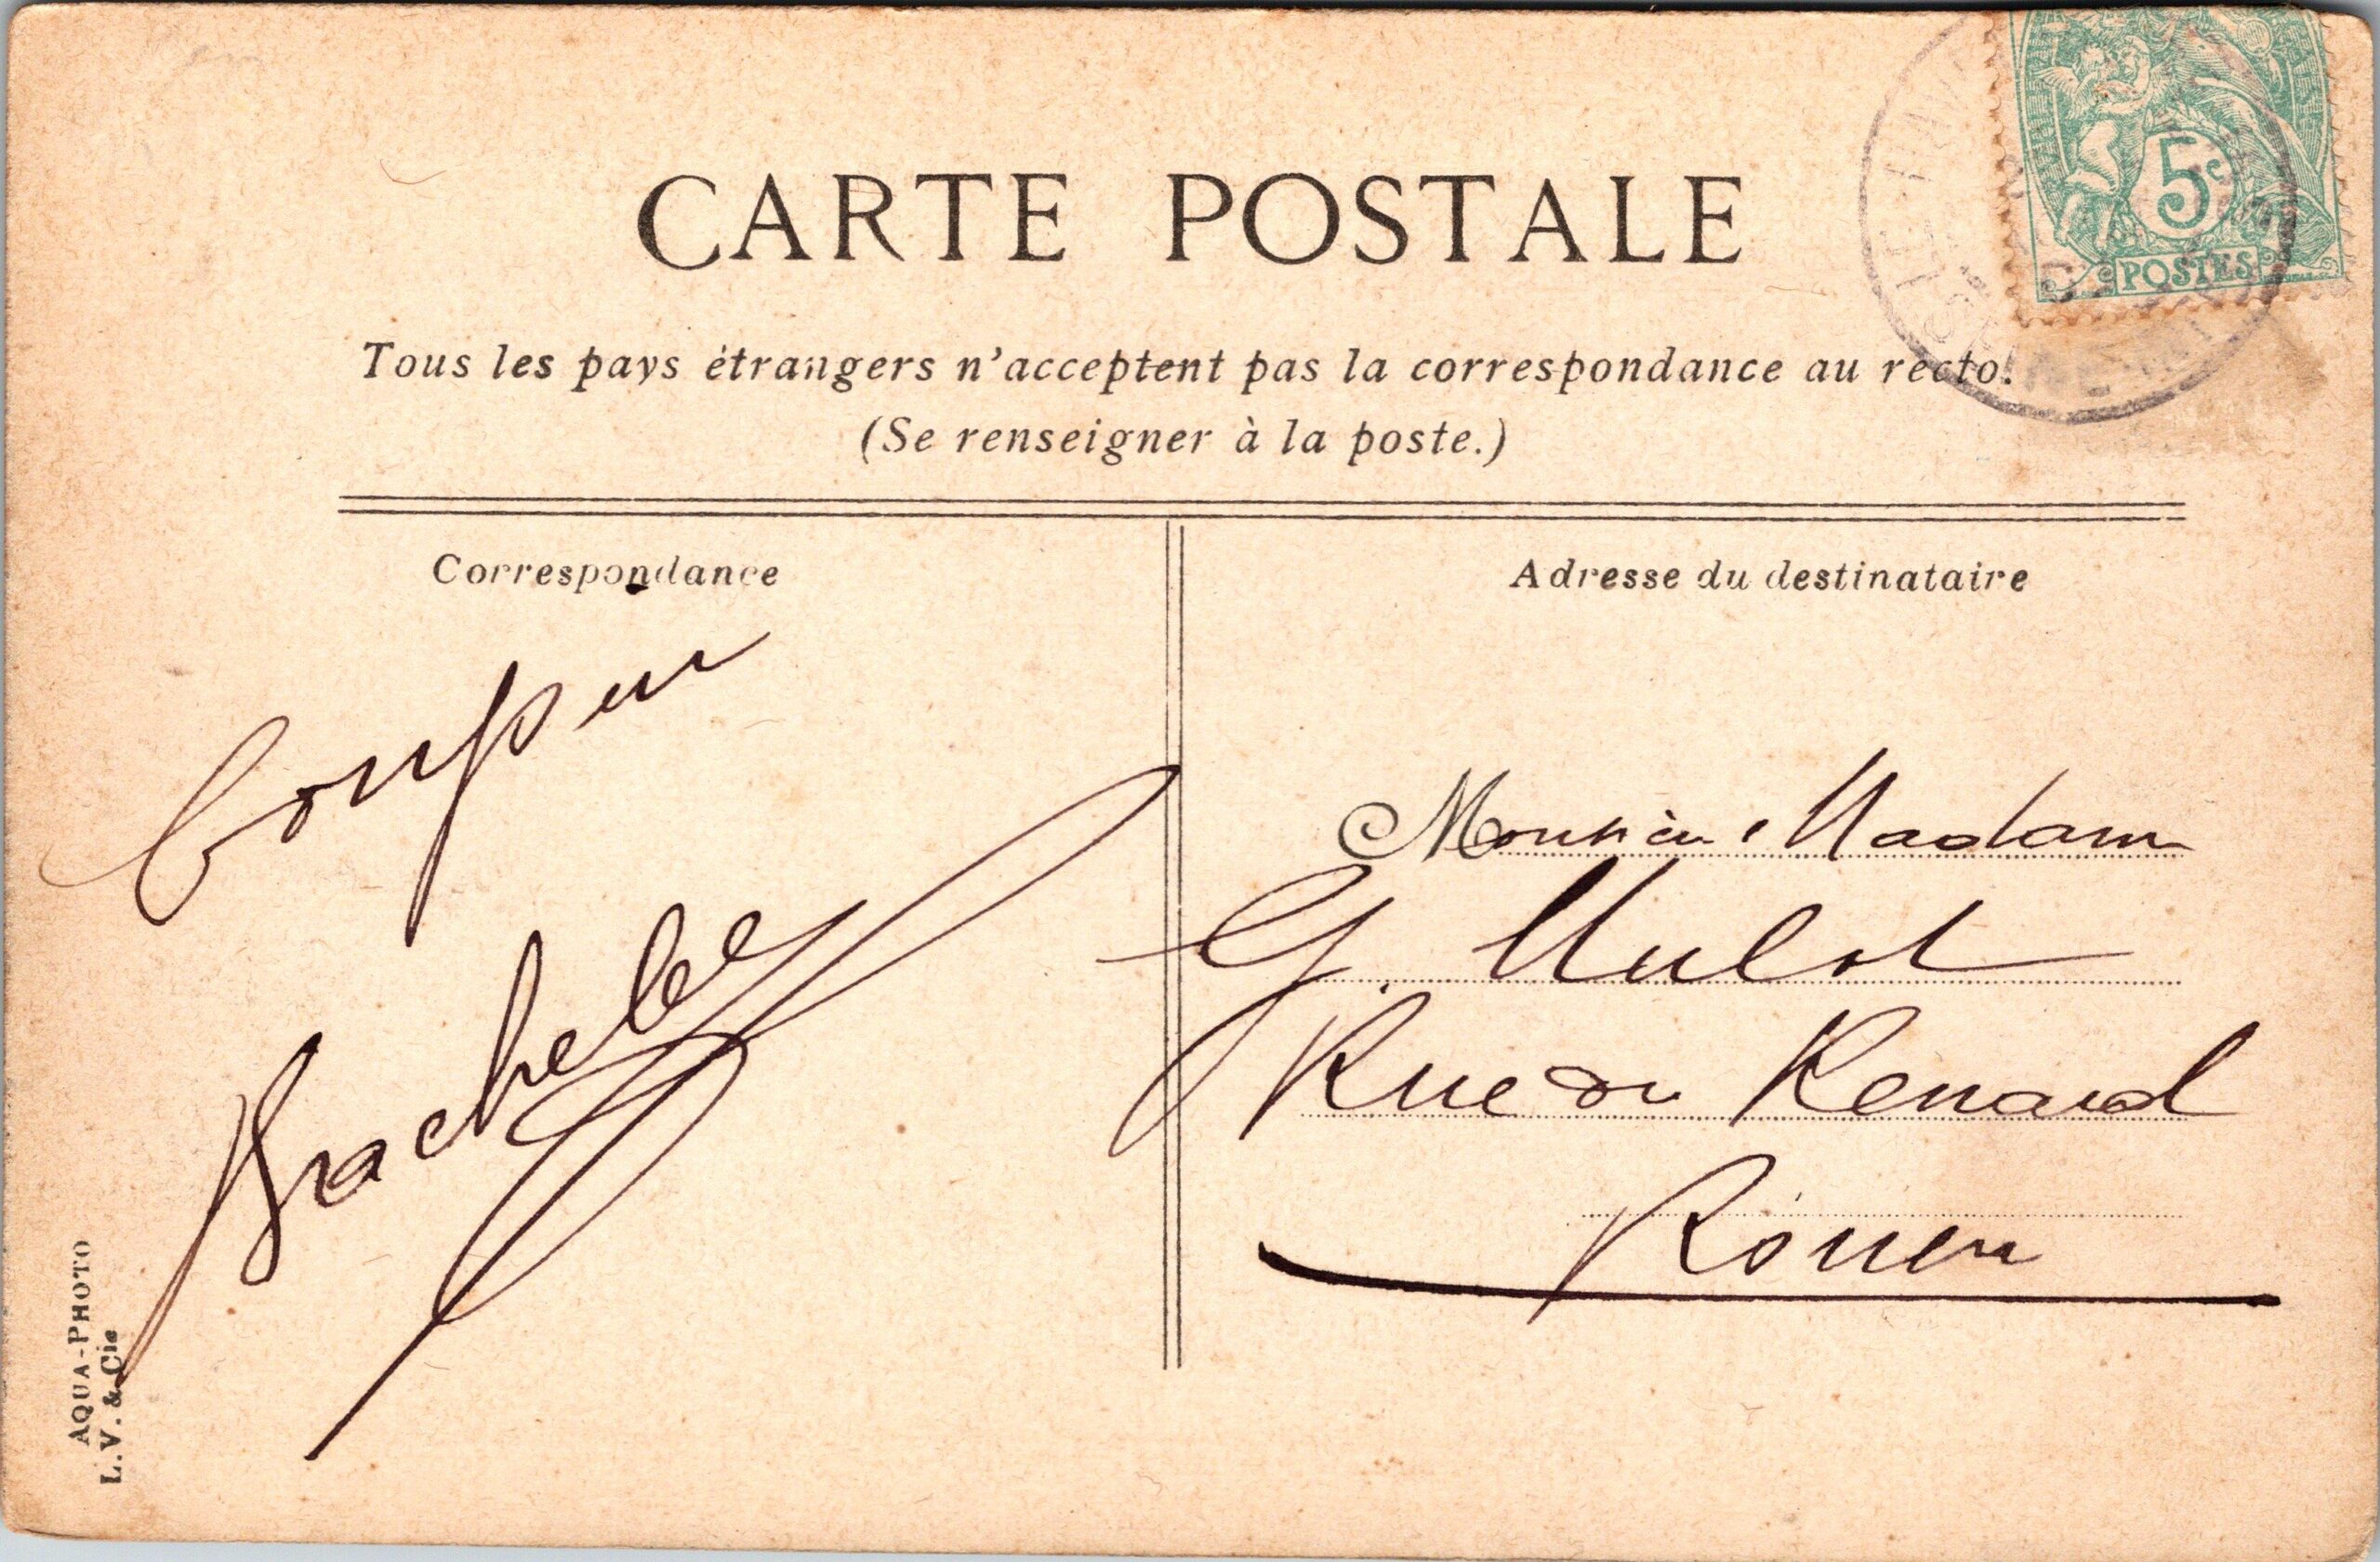 CARTE POSTALE
5c
POSTES
Tous les pays étrangers n'acceptent pas la correspondance au recto.
(Se renseigner à la poste.)
Correspondance
Adresse du destinataire
Monsieur Madam
G. Mulot
Rue du Renard
Rouen
AQUA-PHOTO
L.V. & Cie